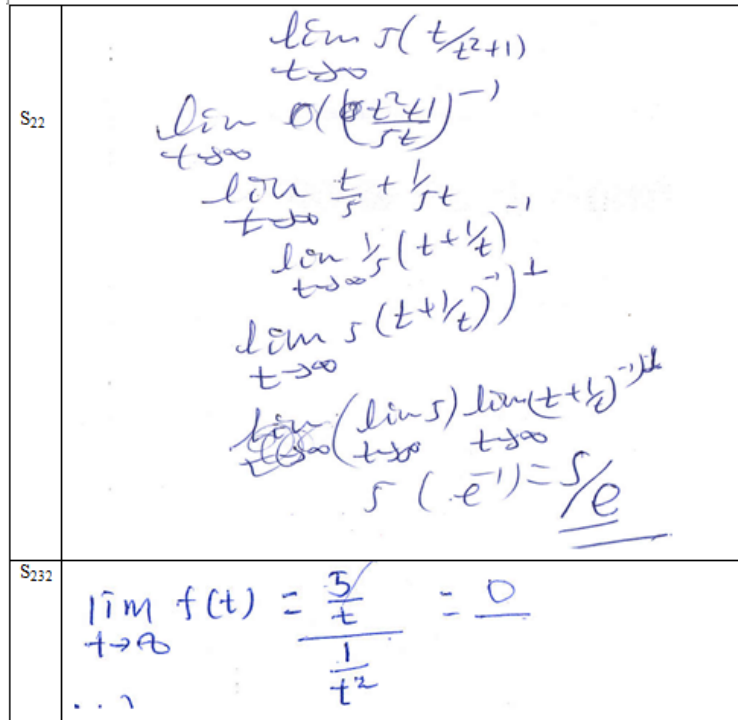 S22
lim t→∞ 5(t/t²+1)
lim t→∞ ((t²+1)/5t)⁻¹
lim t→∞ t/5 + 1/5t
lim t→∞ 1/5(t+1/t)⁻¹
lim t→∞ 5(t+1/t)⁻¹)
(lim t→∞ 5) lim t→∞ (t+1/t)⁻¹
5(e⁻¹) = 5/e
S232
lim t→∞ f(t) = (5/t)/(1/t²) = 0